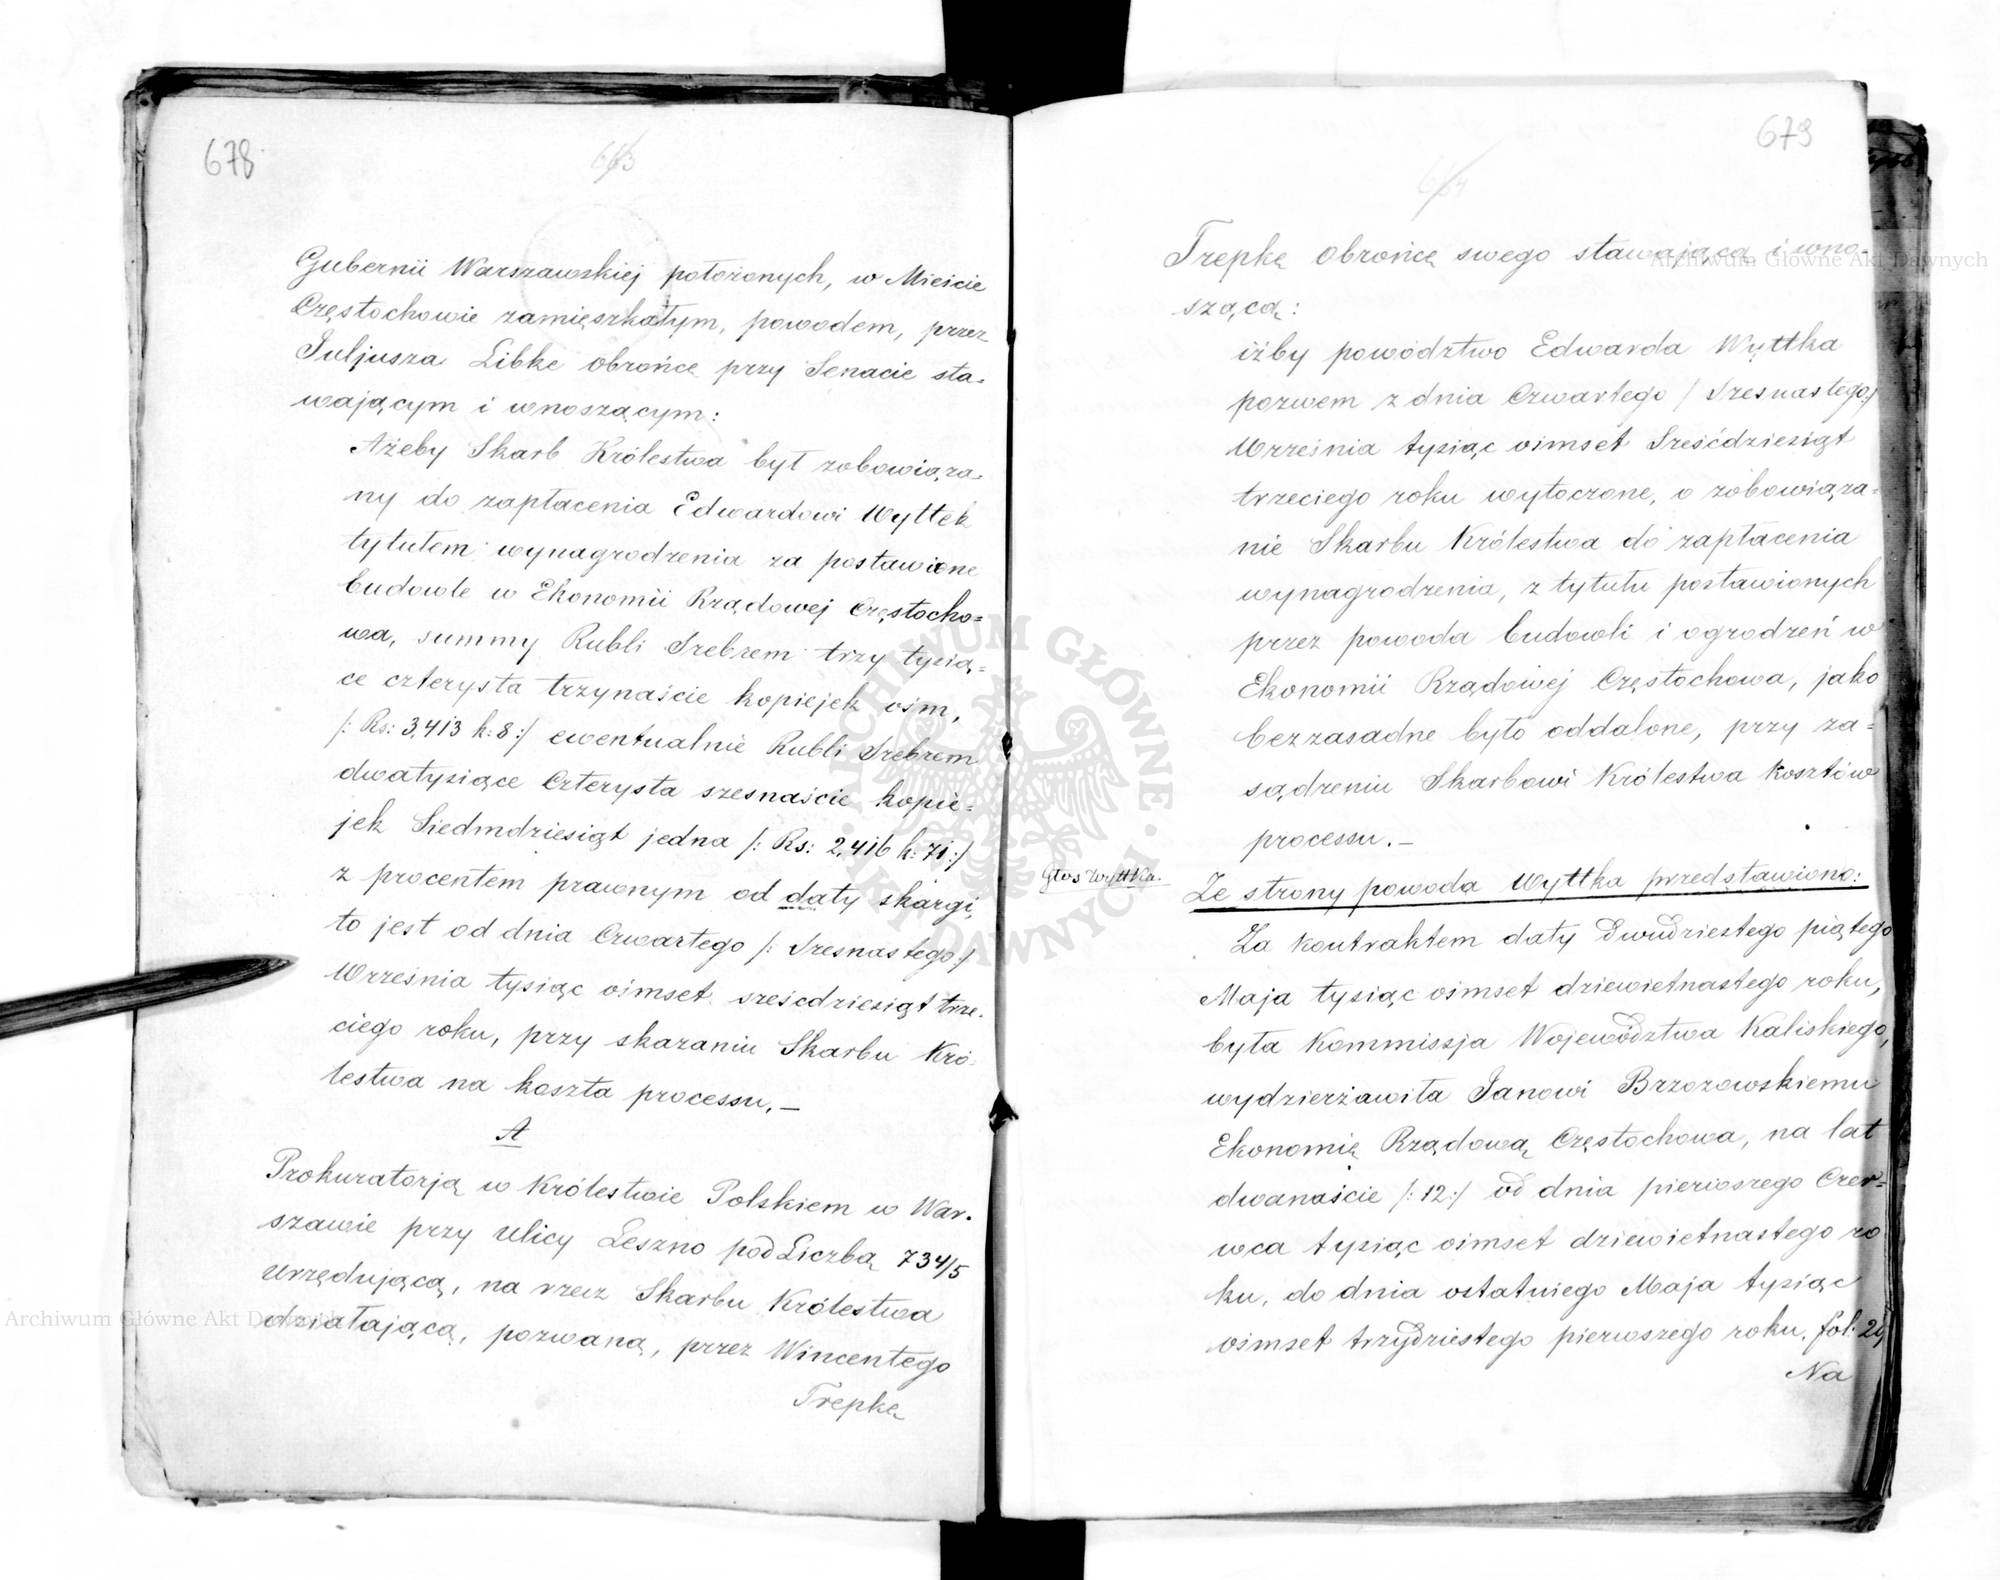 678
663
Gubernii Warszawskiej położonych, w Mieście
Częstochowie zamięszkałym, powodem, przez
Juljusza Libke obrońcę przy Senacie sta-
wającym i wnoszącym:
Ażeby Skarb Królestwa był zobowiąza-
ny do zapłacenia Edwardowi Wyttek
tytułem wynagrodzenia za postawione
budowle w Ekonomii Rządowej Częstocho=
wa, summy Rubli Srebrem trzy tysią=
ce czterysta trzynaście kopiejek ośm,
/: Rs: 3,413 k: 8 :/ ewentualnie Rubli Srebrem
dwatysiące Czterysta szesnaście kopie=
jek Siedmdziesiąt jedna /: Rs: 2,416 k: 71 :/
z procentem prawnym od daty skargi,
to jest od dnia Czwartego /: Szesnastego :/
Września tysiąc ośmset sześćdziesiąt trze-
ciego roku, przy skazaniu Skarbu Kró-
lestwa na koszta processu. —
A
Prokuratorją w Królestwie Polskiem w War-
szawie przy ulicy Leszno pod Liczbą 734/5
urzędującą, na rzecz Skarbu Królestwa
działającą, pozwaną, przez Wincentego
Trepkę
679
664
Trepkę obrońcę swego stawającą i wno-
szącą:
iżby powództwo Edwarda Wyttka
pozwem z dnia Czwartego / Szesnastego :/
Września tysiąc ośmset Sześćdziesiąt
trzeciego roku wytoczone, o zobowiąza=
nie Skarbu Królestwa do zapłacenia
wynagrodzenia, z tytułu postawionych
przez powoda budowli i ogrodzeń w
Ekonomii Rządowej Częstochowa, jako
bezzasadne było oddalone, przy za=
sądzeniu Skarbowi Królestwa kosztów
processu. —
Głos Wyttka.
Ze strony powoda Wyttka przedstawiono:
Za kontraktem daty dwudziestego piątego
Maja tysiąc ośmset dziewietnastego roku,
była Kommissja Województwa Kaliskiego,
wydzierżawiła Janowi Brzozowskiemu
Ekonomię Rządową Częstochowa, na lat
dwanaście /: 12 :/ od dnia pierwszego Czer=
wca tysiąc ośmset dziewietnastego ro
ku, do dnia ostatniego Maja tysiąc
ośmset trzydziestego pierwszego roku. fol: 21,
Na
Archiwum Główne Akt Dawnych
Archiwum Główne Akt Dawnych
ARCHIWUM GŁÓWNE · AKT DAWNYCH ·